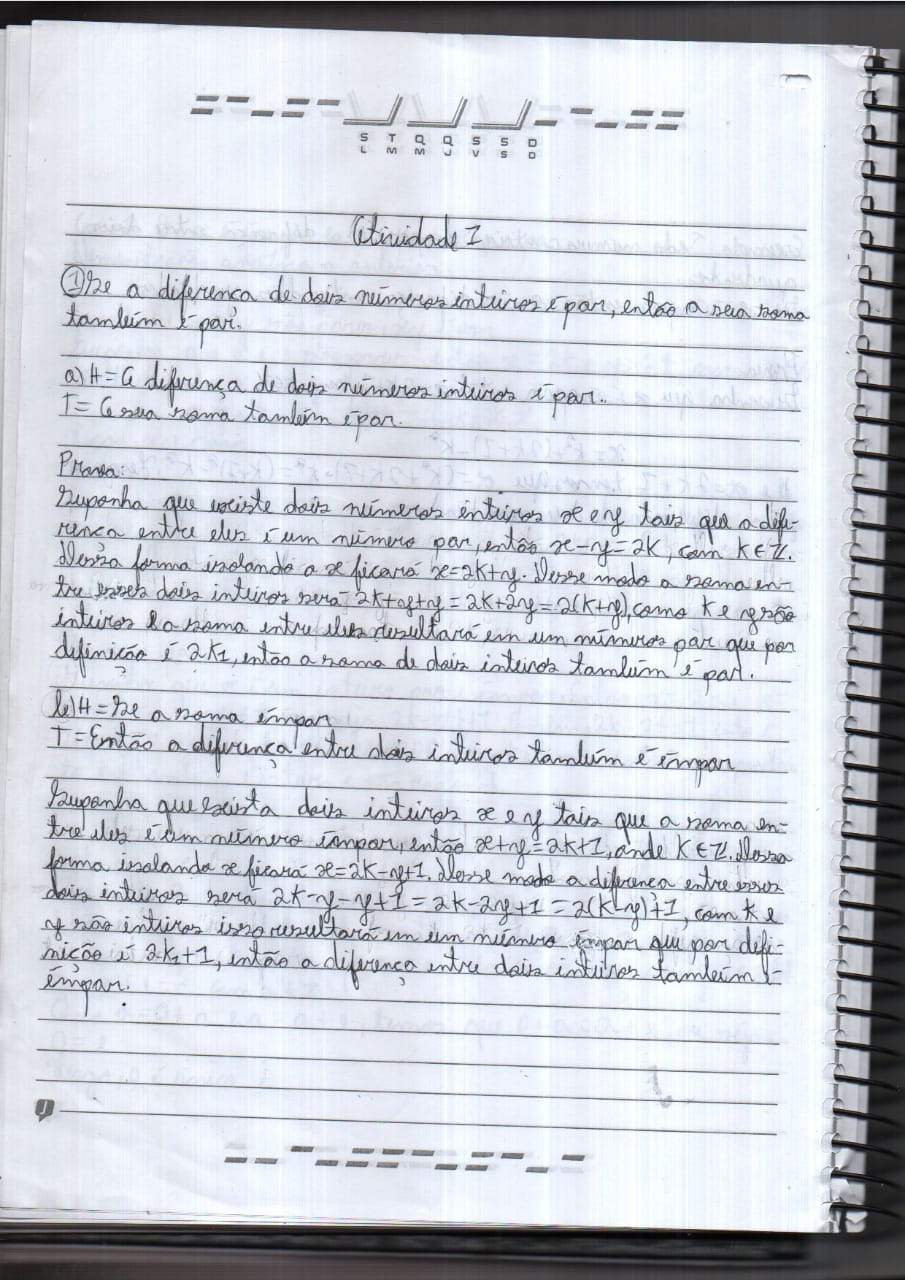 S T Q Q S S D
L M M J V S D
Atividade I
① Se a diferença de dois números inteiros é par, então a sua soma
também é par.
a) H = A diferença de dois números inteiros é par.
T = A sua soma também é par.
Prova:
Suponha que existe dois números inteiros x e y tais que a dife-
rença entre eles é um número par, então x-y=2K, com K∈ℤ.
Dessa forma isolando a x ficará x=2k+y. Desse modo a soma en-
tre esses dois inteiros será 2K+y+y=2K+2y=2(K+y), como K e y são
inteiros a soma entre eles resultará em um números par que por
definição é 2K₁, então a soma de dois inteiros também é par.
b) H = Se a soma ímpar
T = Então a diferença entre dois inteiros também é ímpar
Suponha que exista dois inteiros x e y tais que a soma en-
tre eles é um número ímpar, então x+y=2k+1, onde K∈ℤ. Dessa
forma isolando x ficará x=2K-y+1. Desse modo a diferença entre esses
dois inteiros será 2K-y-y+1=2K-2y+1=2(K-y)+1, com K e
y são inteiros isso resultará em um número ímpar que por defi-
nição é 2K₁+1, então a diferença entre dois inteiros também é
ímpar.